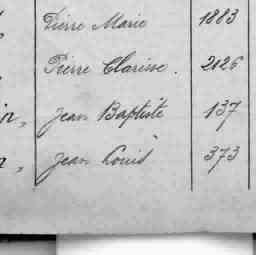 Pierre Marie 1883
Pierre Clarisse. 2126
Jean Baptiste 137
Jean Louis 373